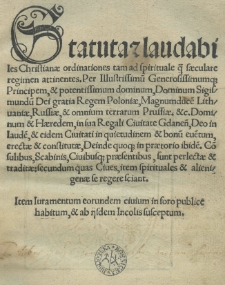 Statuta & laudabi
les Christianæ ordinationes tam ad spirituale q̃ sæculare
regimen attinentes, Per Illustrissimũ Generosissimumq;
Principem, & potentissimum dominum, Dominum Sigis
mundũ Dei gratia Regem Poloniæ, Magnumducẽ Lith
uaniæ, Russiæ & omnium terrarum Prussiæ, &c. Domi
num & Hæredem, in sua Regali Ciuitate Gdaneñ, Deo in
laudẽ, & eidem Ciuitati in quietudinem & bonũ euentum,
erectæ & constitutæ, Deinde quoq; in prætorio ibidẽ. Cõ
sulibus, Scabinis, Ciuibusq; præsentibus, sunt perlectæ &
traditæ, secundum quas Ciues, item spirituales & alieni
genæ se regere sciant.
Item Iuramentum eorundem ciuium in foro publice
habitum, & ab ijsdem Incolis susceptum.